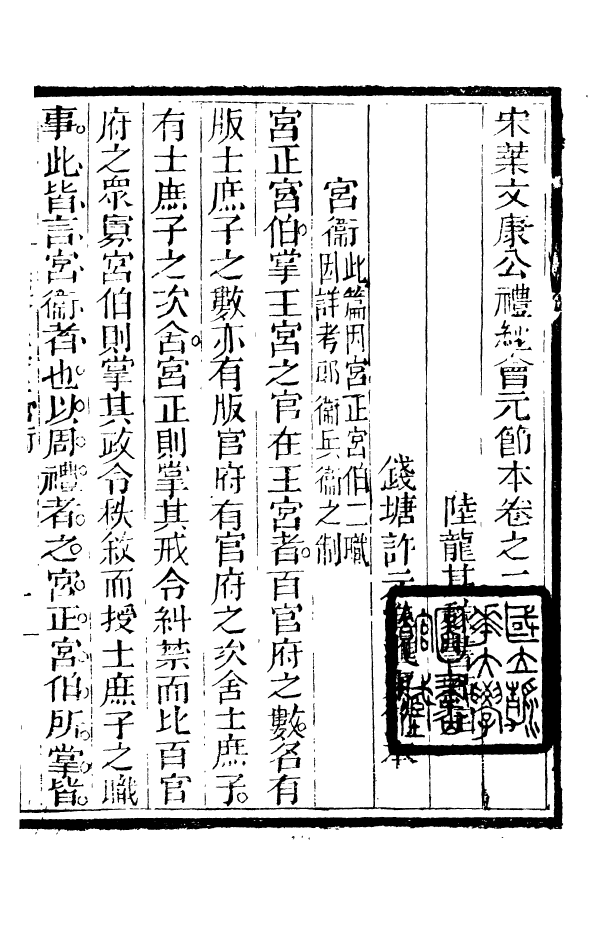 宋葉文康公禮經會元節本卷之二
陸龍其
錢塘許元
宮衞此篇因宮正宮伯二職因詳考邱衞兵衞之制
宮正宮伯掌王宮之官在王宮者百官府之數各有
版士庶子之數亦有版官府有官府之次舍士庶子
有士庶子之次舍宮正則掌其戒令糾禁而比百官
府之眾寡宮伯則掌其政令秩敘而授士庶子之職
事此皆言宮衞者也以周禮考之宮正宮伯所掌皆
國立清華大學圖書館藏